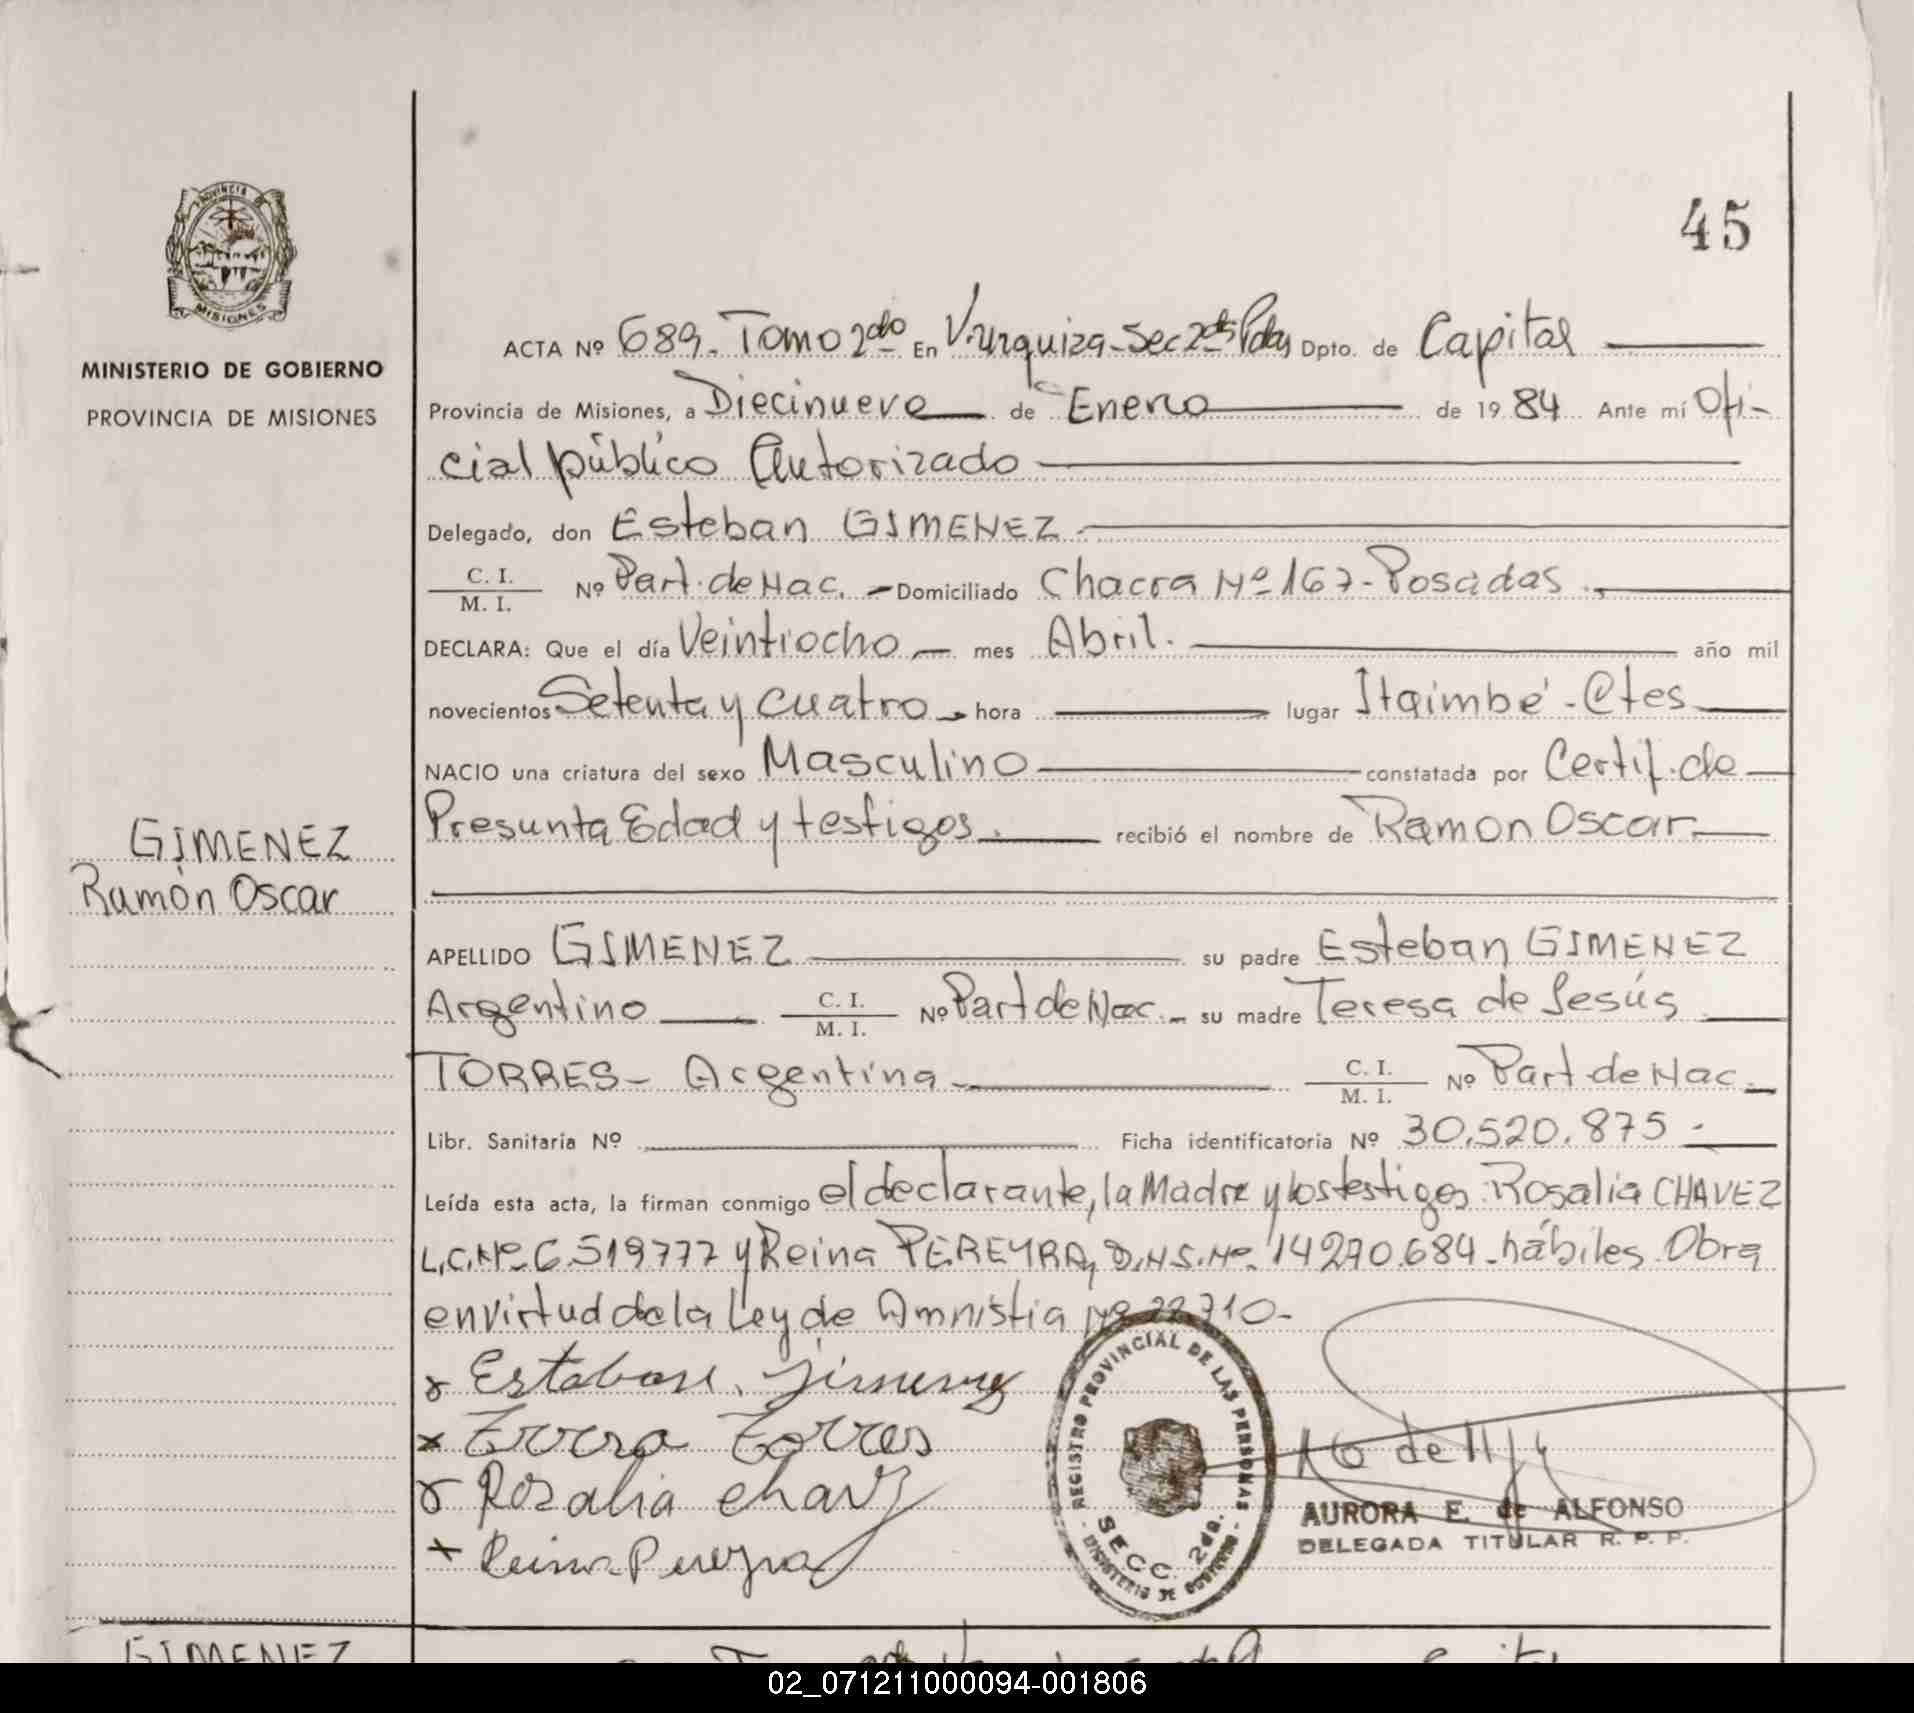 PROVINCIA DE
MISIONES
MINISTERIO DE GOBIERNO
PROVINCIA DE MISIONES
45
ACTA Nº 689. Tomo 2do En V. Urquiza-Sec 2da Pdas Dpto. de Capital
Provincia de Misiones, a Diecinueve de Enero de 1984 Ante mí Ofi-
cial público Autorizado
Delegado, don Esteban GIMENEZ
C. I.
M. I.
Nº Part. de Nac. Domiciliado Chacra Nº 167-Posadas.
DECLARA: Que el día Veintiocho mes Abril. año mil
novecientos Setenta y cuatro hora lugar Itaimbé - Ctes
NACIO una criatura del sexo Masculino constatada por Certif. de
Presunta Edad y testigos. recibió el nombre de Ramon Oscar
GIMENEZ
Ramón Oscar
APELLIDO GIMENEZ su padre Esteban GIMENEZ
Argentino C. I. M. I. Nº Part de Nac. su madre Teresa de Jesús
TORRES- Argentina C. I. M. I. Nº Part de Nac.
Libr. Sanitaria Nº Ficha identificatoria Nº 30.520.875.
Leída esta acta, la firman conmigo el declarante, la Madre y los testigos: Rosalia CHAVEZ
L.C.Nº 6.519777 y Reina PEREYRA, D.N.I.Nº 14270.684-hábiles. Obra
en virtud de la Ley de Amnistia Nº 22710-
x Estaban. Jimenez
x Torres
x Rosalia chavez
x Reina Pereyra
REGISTRO PROVINCIAL DE LAS PERSONAS
SECC. 2da.
- MINISTERIO DE GOBIERNO -
AURORA E. de ALFONSO
DELEGADA TITULAR R. P. P.
GIMENEZ
02_071211000094-001806